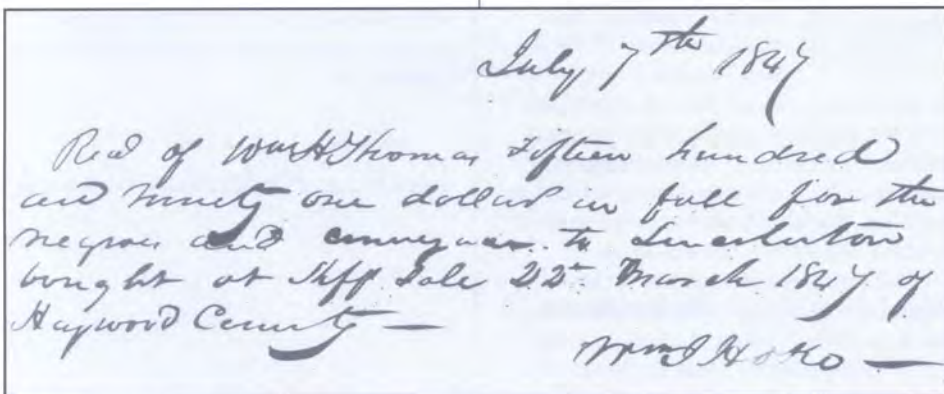 July 7th 1847
Recd of Wm H Thomas Fifteen hundred
and Ninety one dollars in full for the
negroes and to Lincolnton
bought at Shff Sale 22d March 1847 of
Haywood County —
Wm J Hoke —